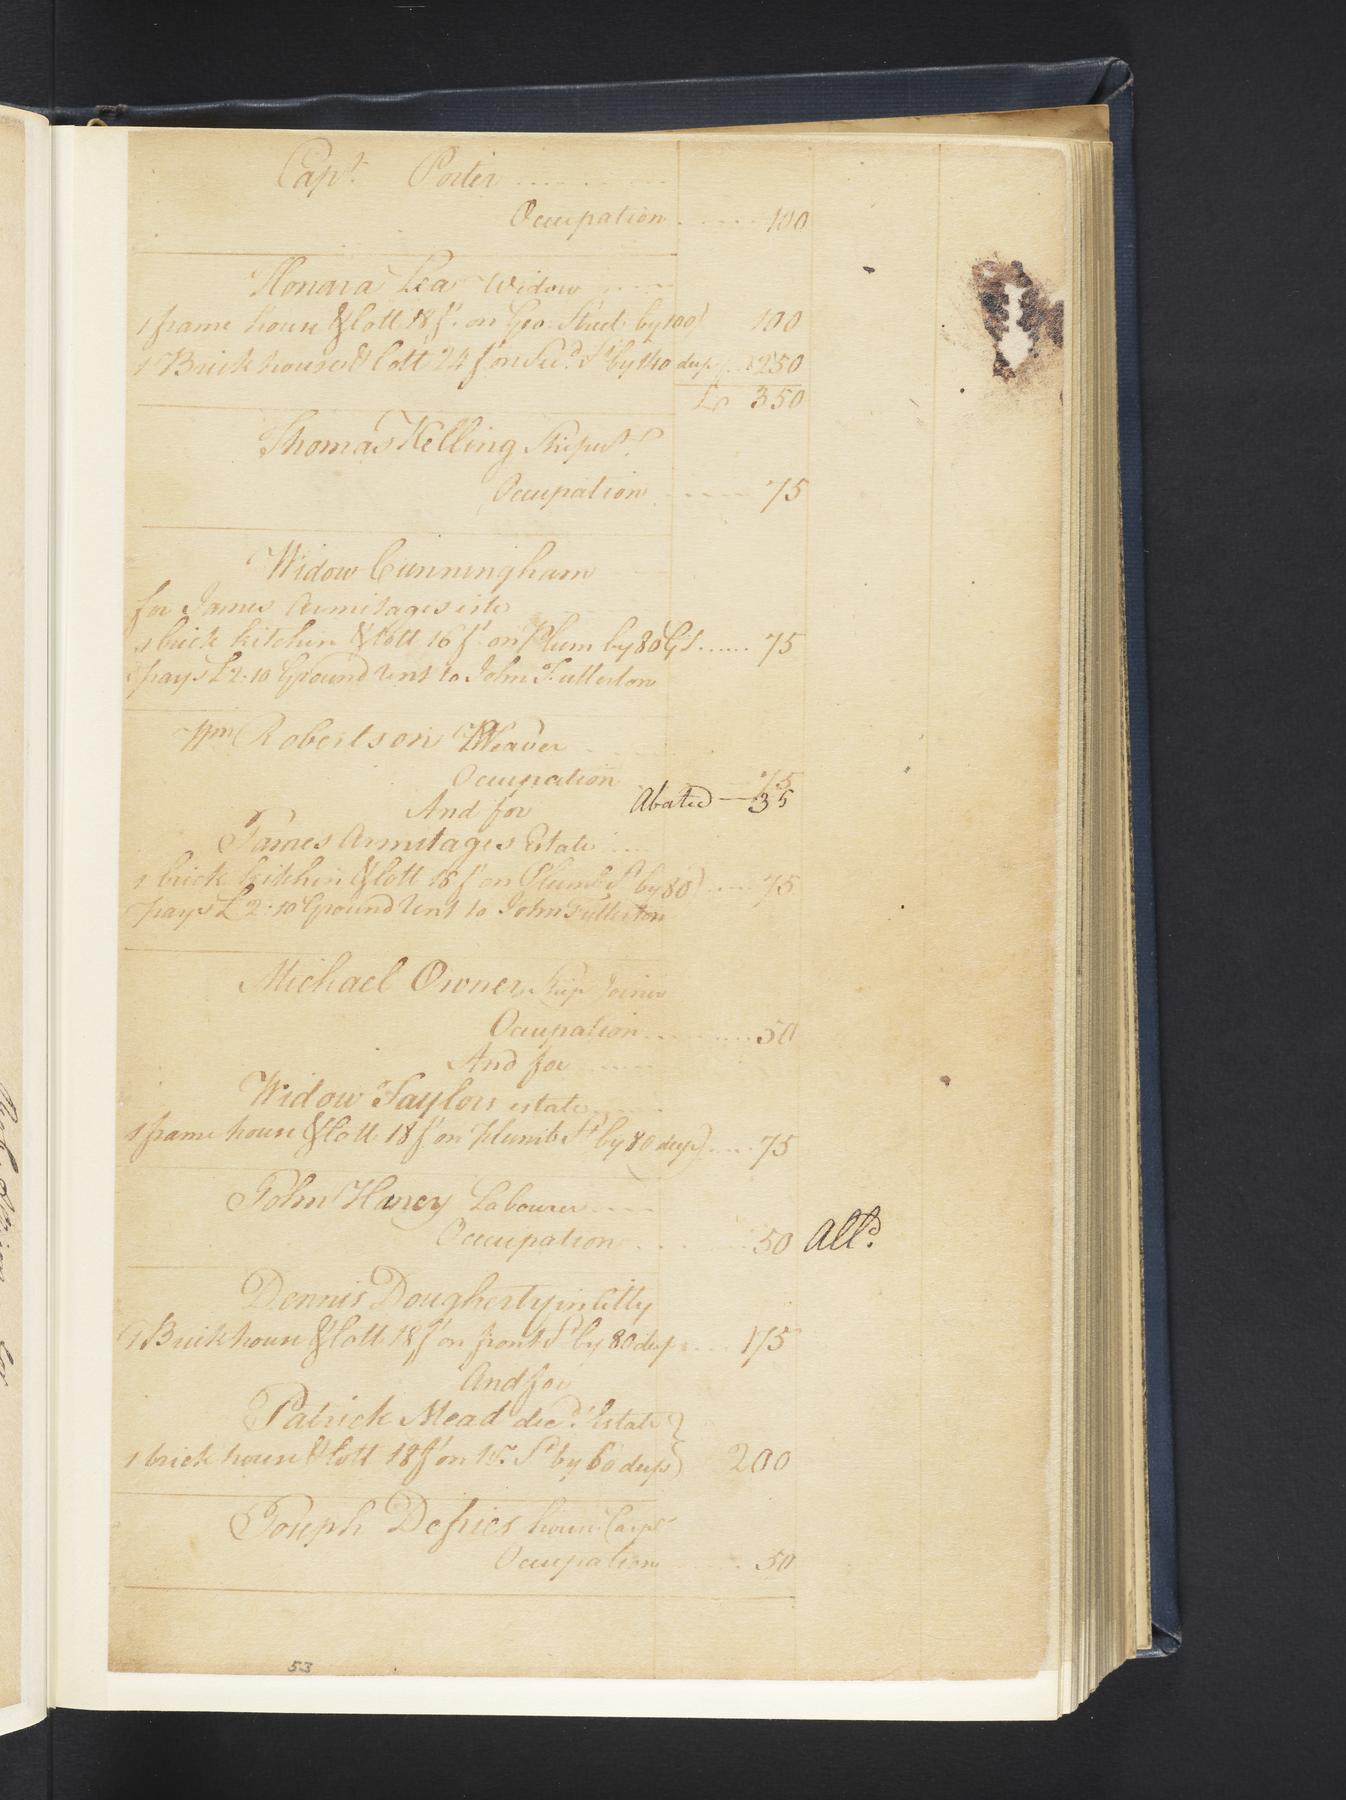 Capt. Porter ..........
Occupation ...... 100
Honara Lea Widow ......
1 frame house & lott 18 f. on Geo. Street by 100) 100
1 Brick house & lott 24 f on Secd. St by 140 deep .. 250
£ 350
Thomas Kelling
Occupation ...... 75
Widow Cunningham
for James Armitages este
1 brick kitchen & lott 16 f. on Plum by 80 ...... 75
pays £2.10 Ground Rent to John Fullerton
Wm Robertson Weaver
Occupation 75
And for Abated — 35
James Armitages Estate ....
1 brick kitchen & lott 18 f on Plumb St by 80) .... 75
pays £2.10 Ground Rent to John Fullerton
Michael Owner Ship Joiner
Occupation .......... 50
And for ......
Widow Taylors estate ....
1 frame house & lott 18 f on Plumb St by 80 deep) .... 75
John Haney Labourer ....
Occupation ...... 50 Alld.
Dennis Dougherty in Citty
1 Brick house & lott 18 f on front St by 80 deep .... 175
And for
Patrick Mead decd. Estate }
1 brick house & lott 18 f on Wr. St by 60 deep) 200
Joseph Defrees house Carpr
Occupation ...... 50
53